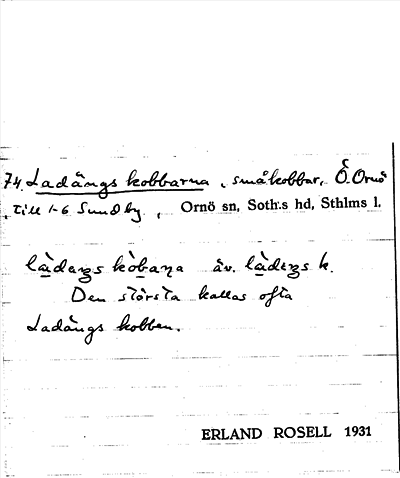 74. Ladängs kobbarna, småkobbar, Ö. Ornö
, till 1-6 Sundby, Ornö sn, Soth:s hd, Sthlms l.
làdengs kòbana äv. làdings k.
Den största kallas ofta
Ladängs kobben.
ERLAND ROSELL 1931